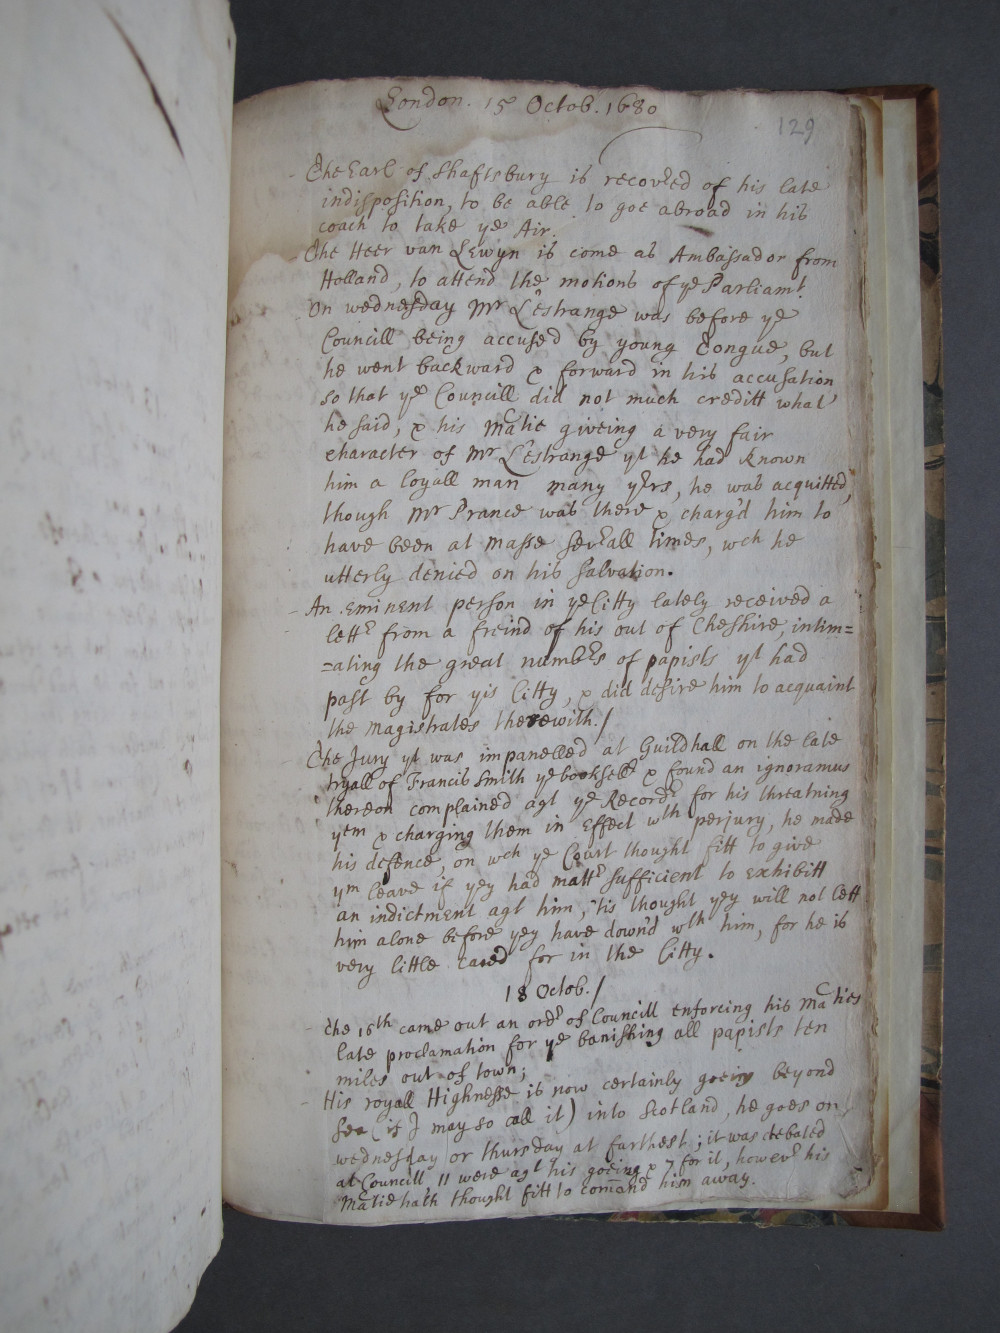 London. 15 Octob. 1680
129
The Earl of Shaftsbury is recovred of his late
indisposition, to be able to goe abroad in his
coach to take ye Air.
The Heer van Lewyn is come as Ambassador from
Holland, to attend the motions of ye Parliamt.
On wednesday Mr L'estrange was before ye
Councill being accused by young Tongue, but
he went backward & forward in his accusation
so that ye Councill did not much creditt what
he said, & his Matie giveing a very fair
character of Mr L'estrange yt he had known
him a loyall man many yeers, he was acquitted,
though Mr Prance was there & charg'd him to
have been at Masse severall times, wch he
utterly denied on his salvation.
An Eminent person in ye Citty lately received a
lettr from a freind of his out of Cheshire, intim=
=ating the great numbers of papists yt had
past by for yis Citty, & did desire him to acquaint
the Magistrates therewith./
The Jury yt was impanelled at Guildhall on the late
tryall of Francis Smith ye booksellr & found an ignoramus
thereon complained agt ye Recordr for his threatning
yem & charging them in Effect wth perjury, he made
his defence, on wch ye Court thought fitt to give
ym leave if yey had mattr sufficient to exhibitt
an indictment agt him, 'tis thought yey will not lett
him alone before yey have down'd wth him, for he is
very little cared for in the Citty.
18 Octob./
The 16th came out an ordr of Councill enforcing his Maties
late proclamation for ye banishing all papists ten
miles out of town;
His royall Highnesse is now certainly goeing beyond
Sea (if I may so call it) into Scotland, he goes on
wednesday or thursday at farthest; it was debated
at Councill 11 were agt his goeing & 7 for it, howevr his
Matie hath thought fitt to comand him away.